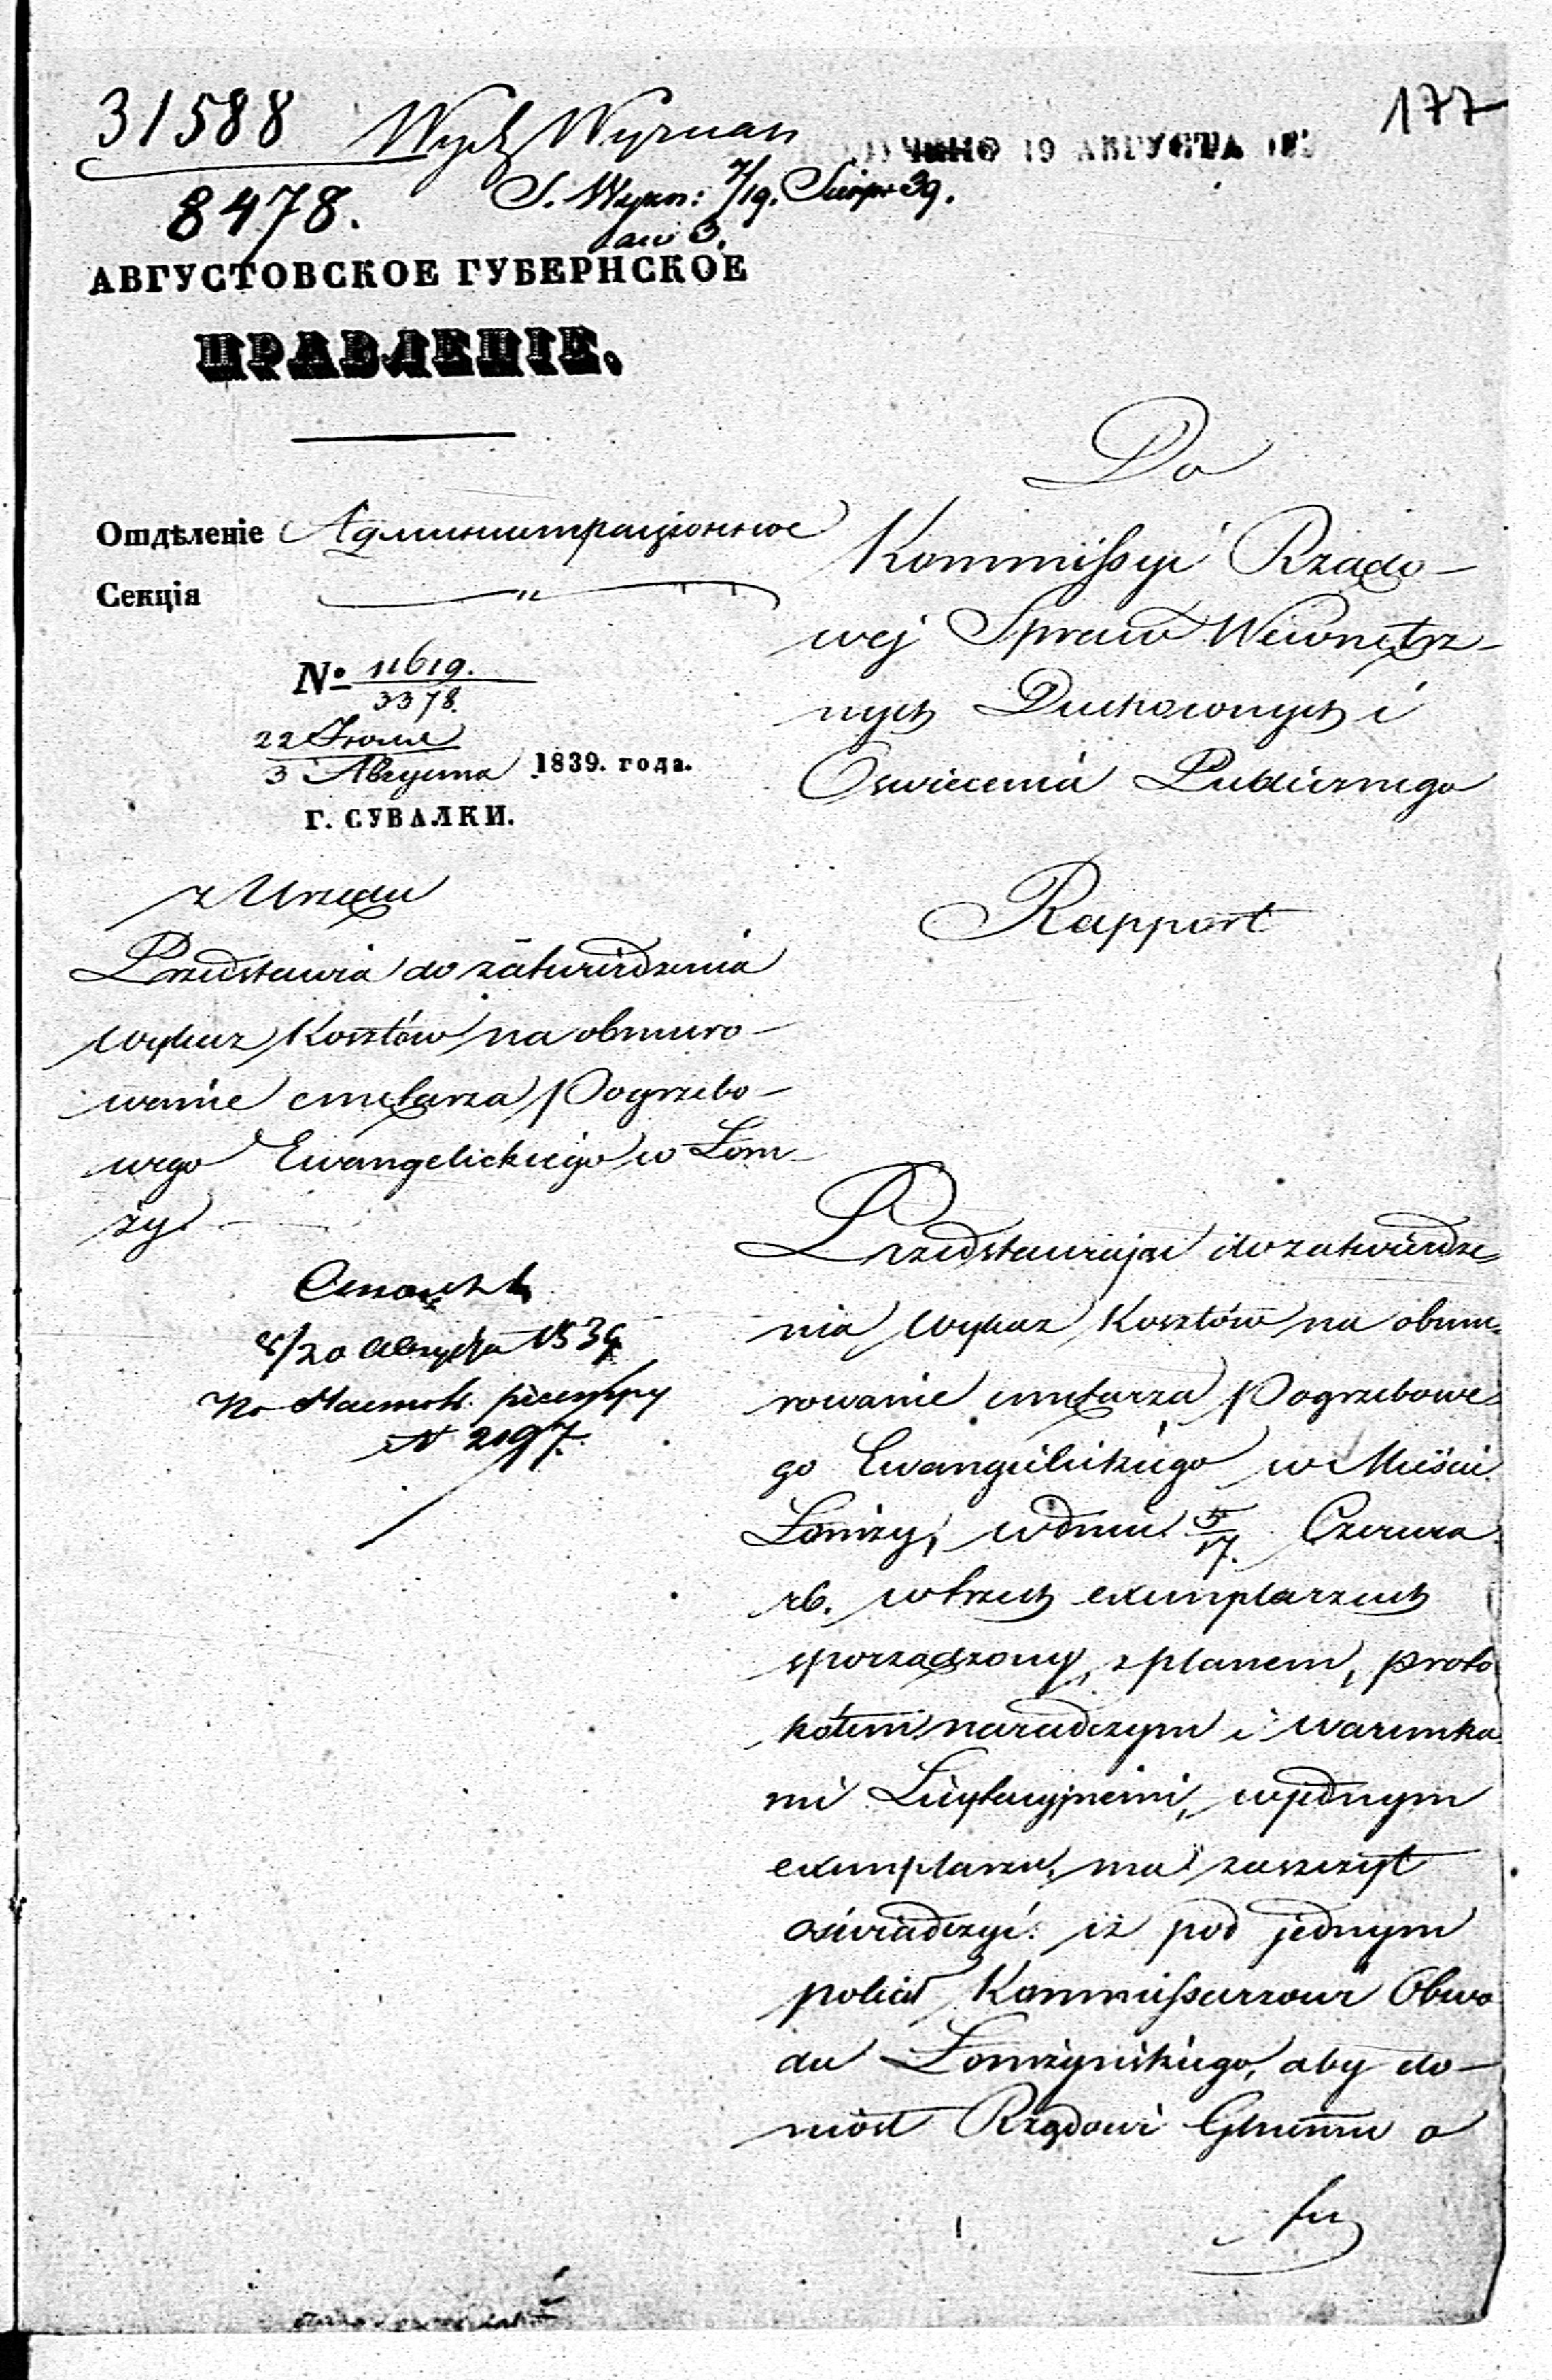 177
31588
8478.
Wydz Wyznań
ПОЛУЧЕНО 19 АВГУСТА 183
S. Wyzn: 7/19. Sierp 39.
АВГУСТОВСКОЕ ГУБЕРНСКОЕ
ПРАВЛЕНІЕ.
Отдѣленіе Администраціонное
Секція "
№ 11619.
3378.
22 Іюля
3 Августа 1839. года.
Г. СУВАЛКИ.
z Urzędu
Przedstawia do zatwierdzenia
wykaz Kosztów na obmuro-
wanie cmętarza Pogrzebo-
wego Ewangelickiego w Łom-
ży.
8/20 Августа 1839
По Настоль. реестру
№ 2197.
Do
Kommissyi Rządo-
wej Spraw Wewnętrz-
nych Duchownych i
Oswiecenia Publicznego
Rapport
Przedstawiając do zatwierdze-
nia wykaz Kosztów na obmu-
rowanie cmętarza Pogrzebowe-
go Ewangielickiego w Mieście
Łomży, w dniu 5/17. Czerwca
rb. w trzech exemplarzach
sporządzony, z planem, proto
kółem naradczym i warunka
mi Licytacyjnemi, w jednym
exemplarzu, ma zaszczyt
oświadczyć: iż pod jednym
polecił Kommissarzowi Obwo
du Łomżyńskiego, aby do-
niósł Rządowi Gbernmu o